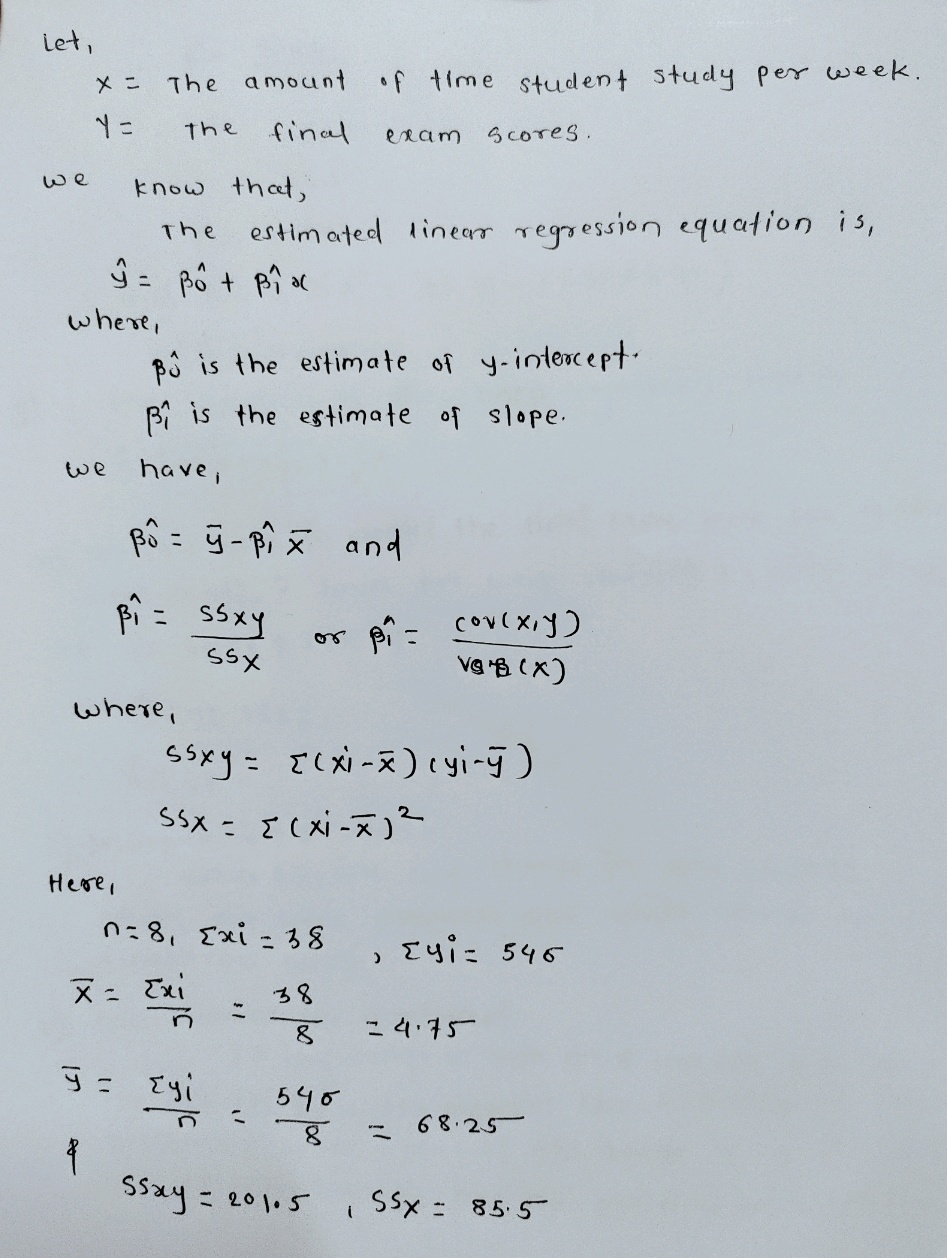 Let,
x = The amount of time student study per week.
Y = The final exam scores.
we know that,
The estimated linear regression equation is,
ŷ = β̂0 + β̂1 x
where,
β̂0 is the estimate of y-intercept.
β̂1 is the estimate of slope.
we have,
β̂0 = ȳ - β̂1 x̄ and
β̂1 = SSxy / SSX or β̂1 = cov(x,y) / var(x)
where,
SSxy = Σ(xi - x̄)(yi - ȳ)
SSX = Σ(xi - x̄)²
Here,
n = 8, Σxi = 38, Σyi = 546
x̄ = Σxi / n = 38 / 8 = 4.75
ȳ = Σyi / n = 546 / 8 = 68.25
&
SSxy = 201.5, SSX = 85.5